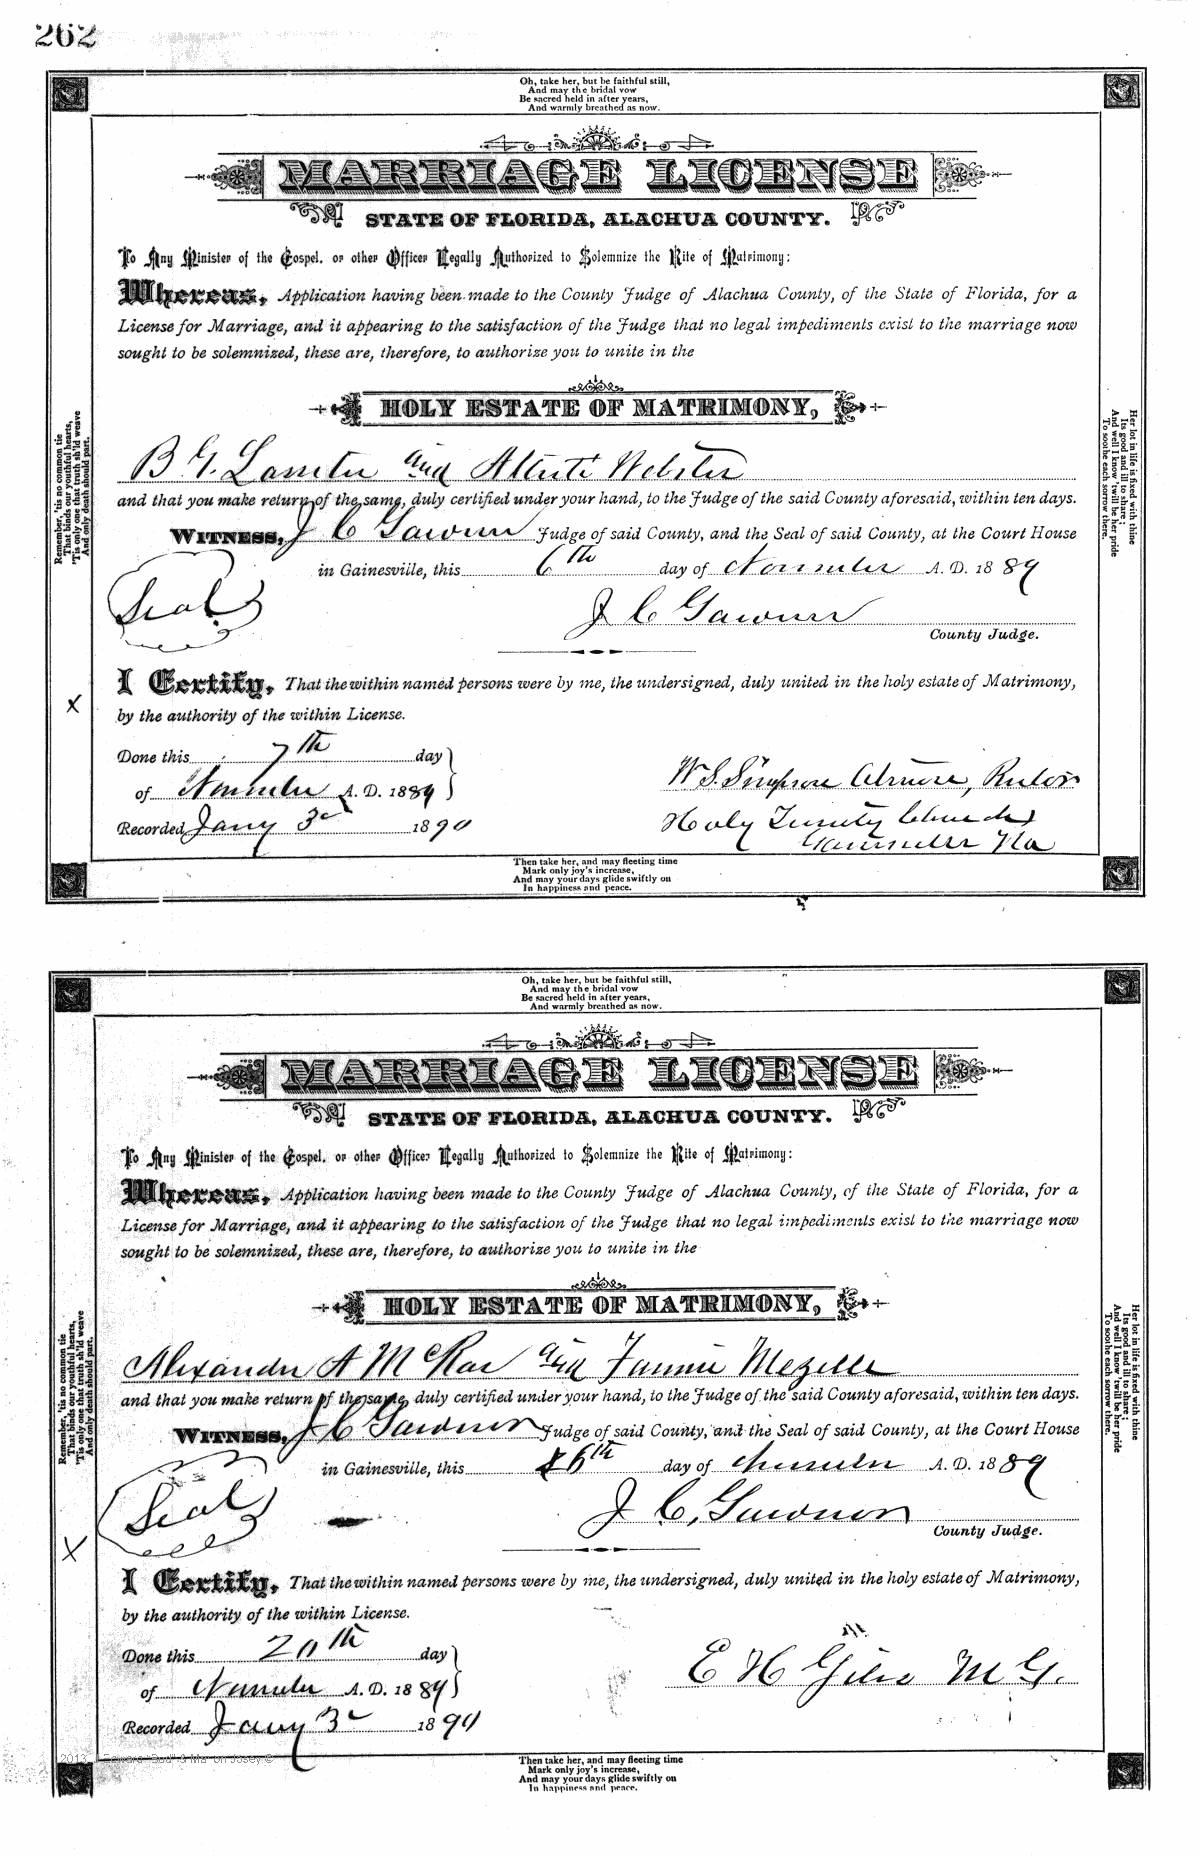 262
Oh, take her, but be faithful still,
And may the bridal vow
Be sacred held in after years,
And warmly breathed as now.
MARRIAGE LICENSE
STATE OF FLORIDA, ALACHUA COUNTY.
To Any Minister of the Gospel, or other Officer Legally Authorized to Solemnize the Rite of Matrimony:
Whereas, Application having been made to the County Judge of Alachua County, of the State of Florida, for a
License for Marriage, and it appearing to the satisfaction of the Judge that no legal impediments exist to the marriage now
sought to be solemnized, these are, therefore, to authorize you to unite in the
HOLY ESTATE OF MATRIMONY,
B G. and Webster
and that you make return of the same, duly certified under your hand, to the Judge of the said County aforesaid, within ten days.
WITNESS, J C Judge of said County, and the Seal of said County, at the Court House
in Gainesville, this 6th day of November A. D. 1889
Seal
J C
County Judge.
I Certify, That the within named persons were by me, the undersigned, duly united in the holy estate of Matrimony,
by the authority of the within License.
X
Done this 7th day
of November A. D. 1889
Recorded Jany 3d 1890
W. S. Simpson Atmore, Rector
Holy Trinity Church
Gainesville Fla
Remember, 'tis no common tie
That binds our youthful hearts,
'Tis only one that truth sh'ld weave
And only death should part.
Her lot in life is fixed with thine
Its good and ill to share;
And well I know 'twill be her pride
To soothe each sorrow there.
Then take her, and may fleeting time
Mark only joy's increase,
And may your days glide swiftly on
In happiness and peace.
Oh, take her, but be faithful still,
And may the bridal vow
Be sacred held in after years,
And warmly breathed as now.
MARRIAGE LICENSE
STATE OF FLORIDA, ALACHUA COUNTY.
To Any Minister of the Gospel, or other Officer Legally Authorized to Solemnize the Rite of Matrimony:
Whereas, Application having been made to the County Judge of Alachua County, of the State of Florida, for a
License for Marriage, and it appearing to the satisfaction of the Judge that no legal impediments exist to the marriage now
sought to be solemnized, these are, therefore, to authorize you to unite in the
HOLY ESTATE OF MATRIMONY,
Alexander A McRae and Fannie Mezelle
and that you make return of the same, duly certified under your hand, to the Judge of the said County aforesaid, within ten days.
WITNESS, J C Judge of said County, and the Seal of said County, at the Court House
in Gainesville, this 6th day of November A. D. 1889
Seal
J C,
County Judge.
X
I Certify, That the within named persons were by me, the undersigned, duly united in the holy estate of Matrimony,
by the authority of the within License.
Done this 20th day
of November A. D. 1889
Recorded Jany 3d 1890
E H Giles M G.
Remember, 'tis no common tie
That binds our youthful hearts,
'Tis only one that truth sh'ld weave
And only death should part.
Her lot in life is fixed with thine
Its good and ill to share;
And well I know 'twill be her pride
To soothe each sorrow there.
Then take her, and may fleeting time
Mark only joy's increase,
And may your days glide swiftly on
In happiness and peace.